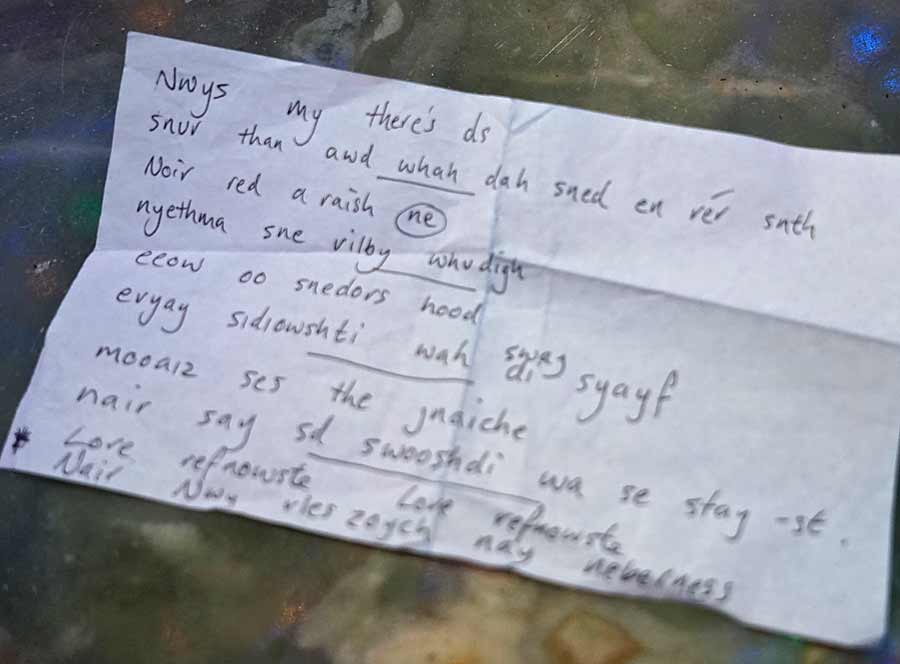 Nwys my there's ds
snur than awd whah dah sned en rér snth
Noir red a raish ne
nyethma sne vilby whudigh
eeow oo snedors hood
evyay sidiowshti wah swag di syayf
mooaiz ses the jnaiche
nair say sd swooshdi wa se stay -st.
Love refnowste Love refnowste
Nair Nwy ries zoych nay nebelness